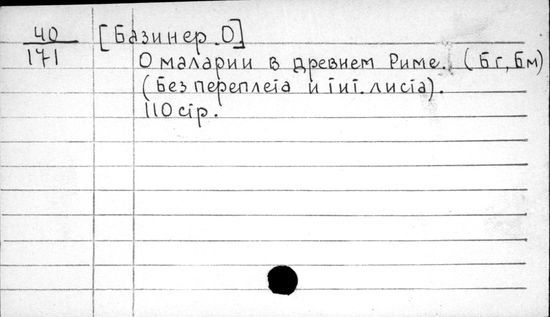 40 [Базинер О]
171 О маларии в древнем Риме. (Бг, Бм)
(Без переплета и тит. листа).
110 стр.